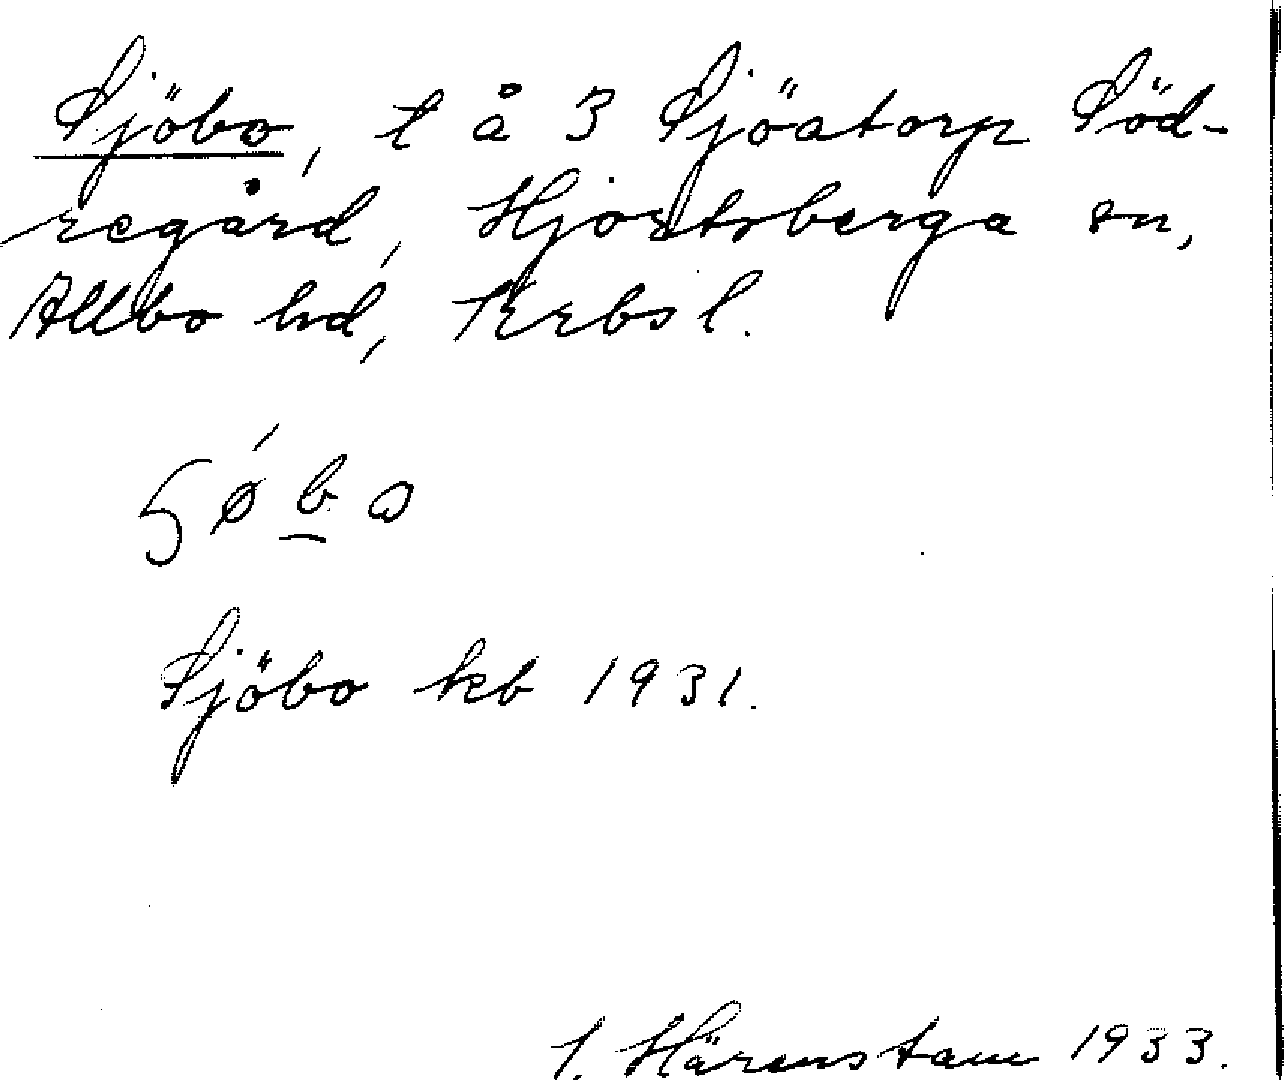 Sjöbo, l å 3 Sjöatorp Söd-
regård, Hjortsberga sn,
Allbo hd, Krbs l.
Sjöbo kb 1931.
I. Härenstam 1933.